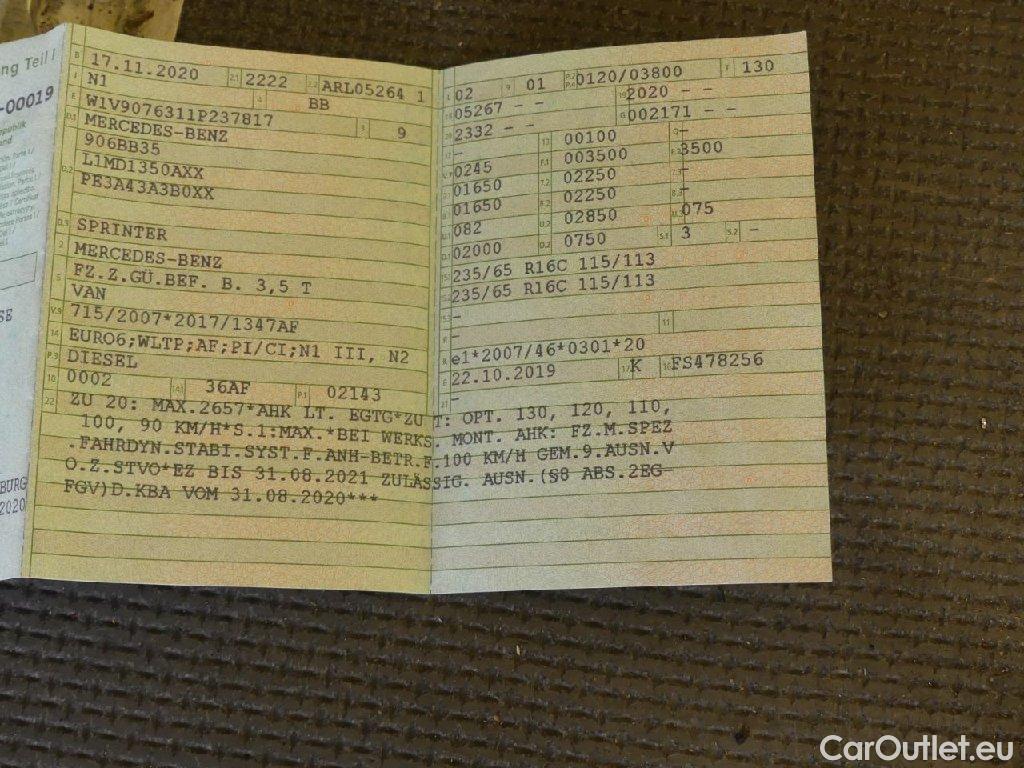 ng Teil I
-00019
SE
BURG
2020
B 17.11.2020 2.1 2222 2.2 ARL05264 1
J N1 4 BB
E W1V9076311P237817 3 9
D.1 MERCEDES-BENZ
906BB35
D.2 L1MD1350AXX
PE3A43A3B0XX
D.3 SPRINTER
2 MERCEDES-BENZ
5 FZ.Z.GÜ.BEF. B. 3,5 T
VAN
V.9 715/2007*2017/1347AF
14 EURO6;WLTP;AF;PI/CI;N1 III, N2
P.3 DIESEL
10 0002 14.1 36AF P.1 02143
22 ZU 20: MAX.2657*AHK LT. EGTG*ZU T: OPT. 130, 120, 110,
100, 90 KM/H*S.1:MAX.*BEI WERKS. MONT. AHK: FZ.M.SPEZ
.FAHRDYN.STABI.SYST.F.ANH-BETR.F.100 KM/H GEM.9.AUSN.V
O.Z.STVO*EZ BIS 31.08.2021 ZULÄSSIG. AUSN.(§8 ABS.2EG-
FGV)D.KBA VOM 31.08.2020***
L 02 9 01 P.2 P.4 0120/03800 T 130
18 05267 - - 19 2020 - -
20 2332 - - G 002171 - -
12 - 13 00100 Q -
V.7 0245 F.1 003500 F.2 3500
7.1 01650 7.2 02250 7.3 -
8.1 01650 8.2 02250 8.3 -
U.1 082 U.2 02850 U.3 075
O.1 02000 O.2 0750 S.1 3 S.2 -
15.1 235/65 R16C 115/113
15.2 235/65 R16C 115/113
15.3 -
R - 11
K e1*2007/46*0301*20
6 22.10.2019 17 K 16 FS478256
21 -
CarOutlet.eu